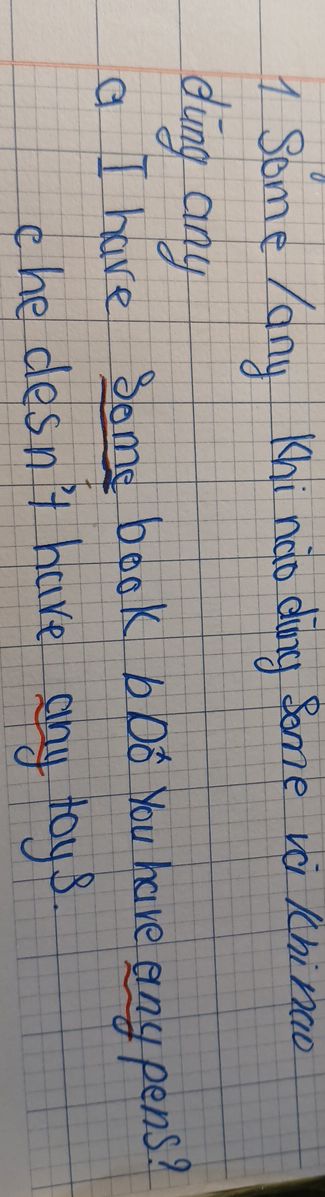 1 Some / any Khi nào dùng Some và Khi nào
dùng any
a I have Some book b Do You have any pens?
c he desn't have any toys.